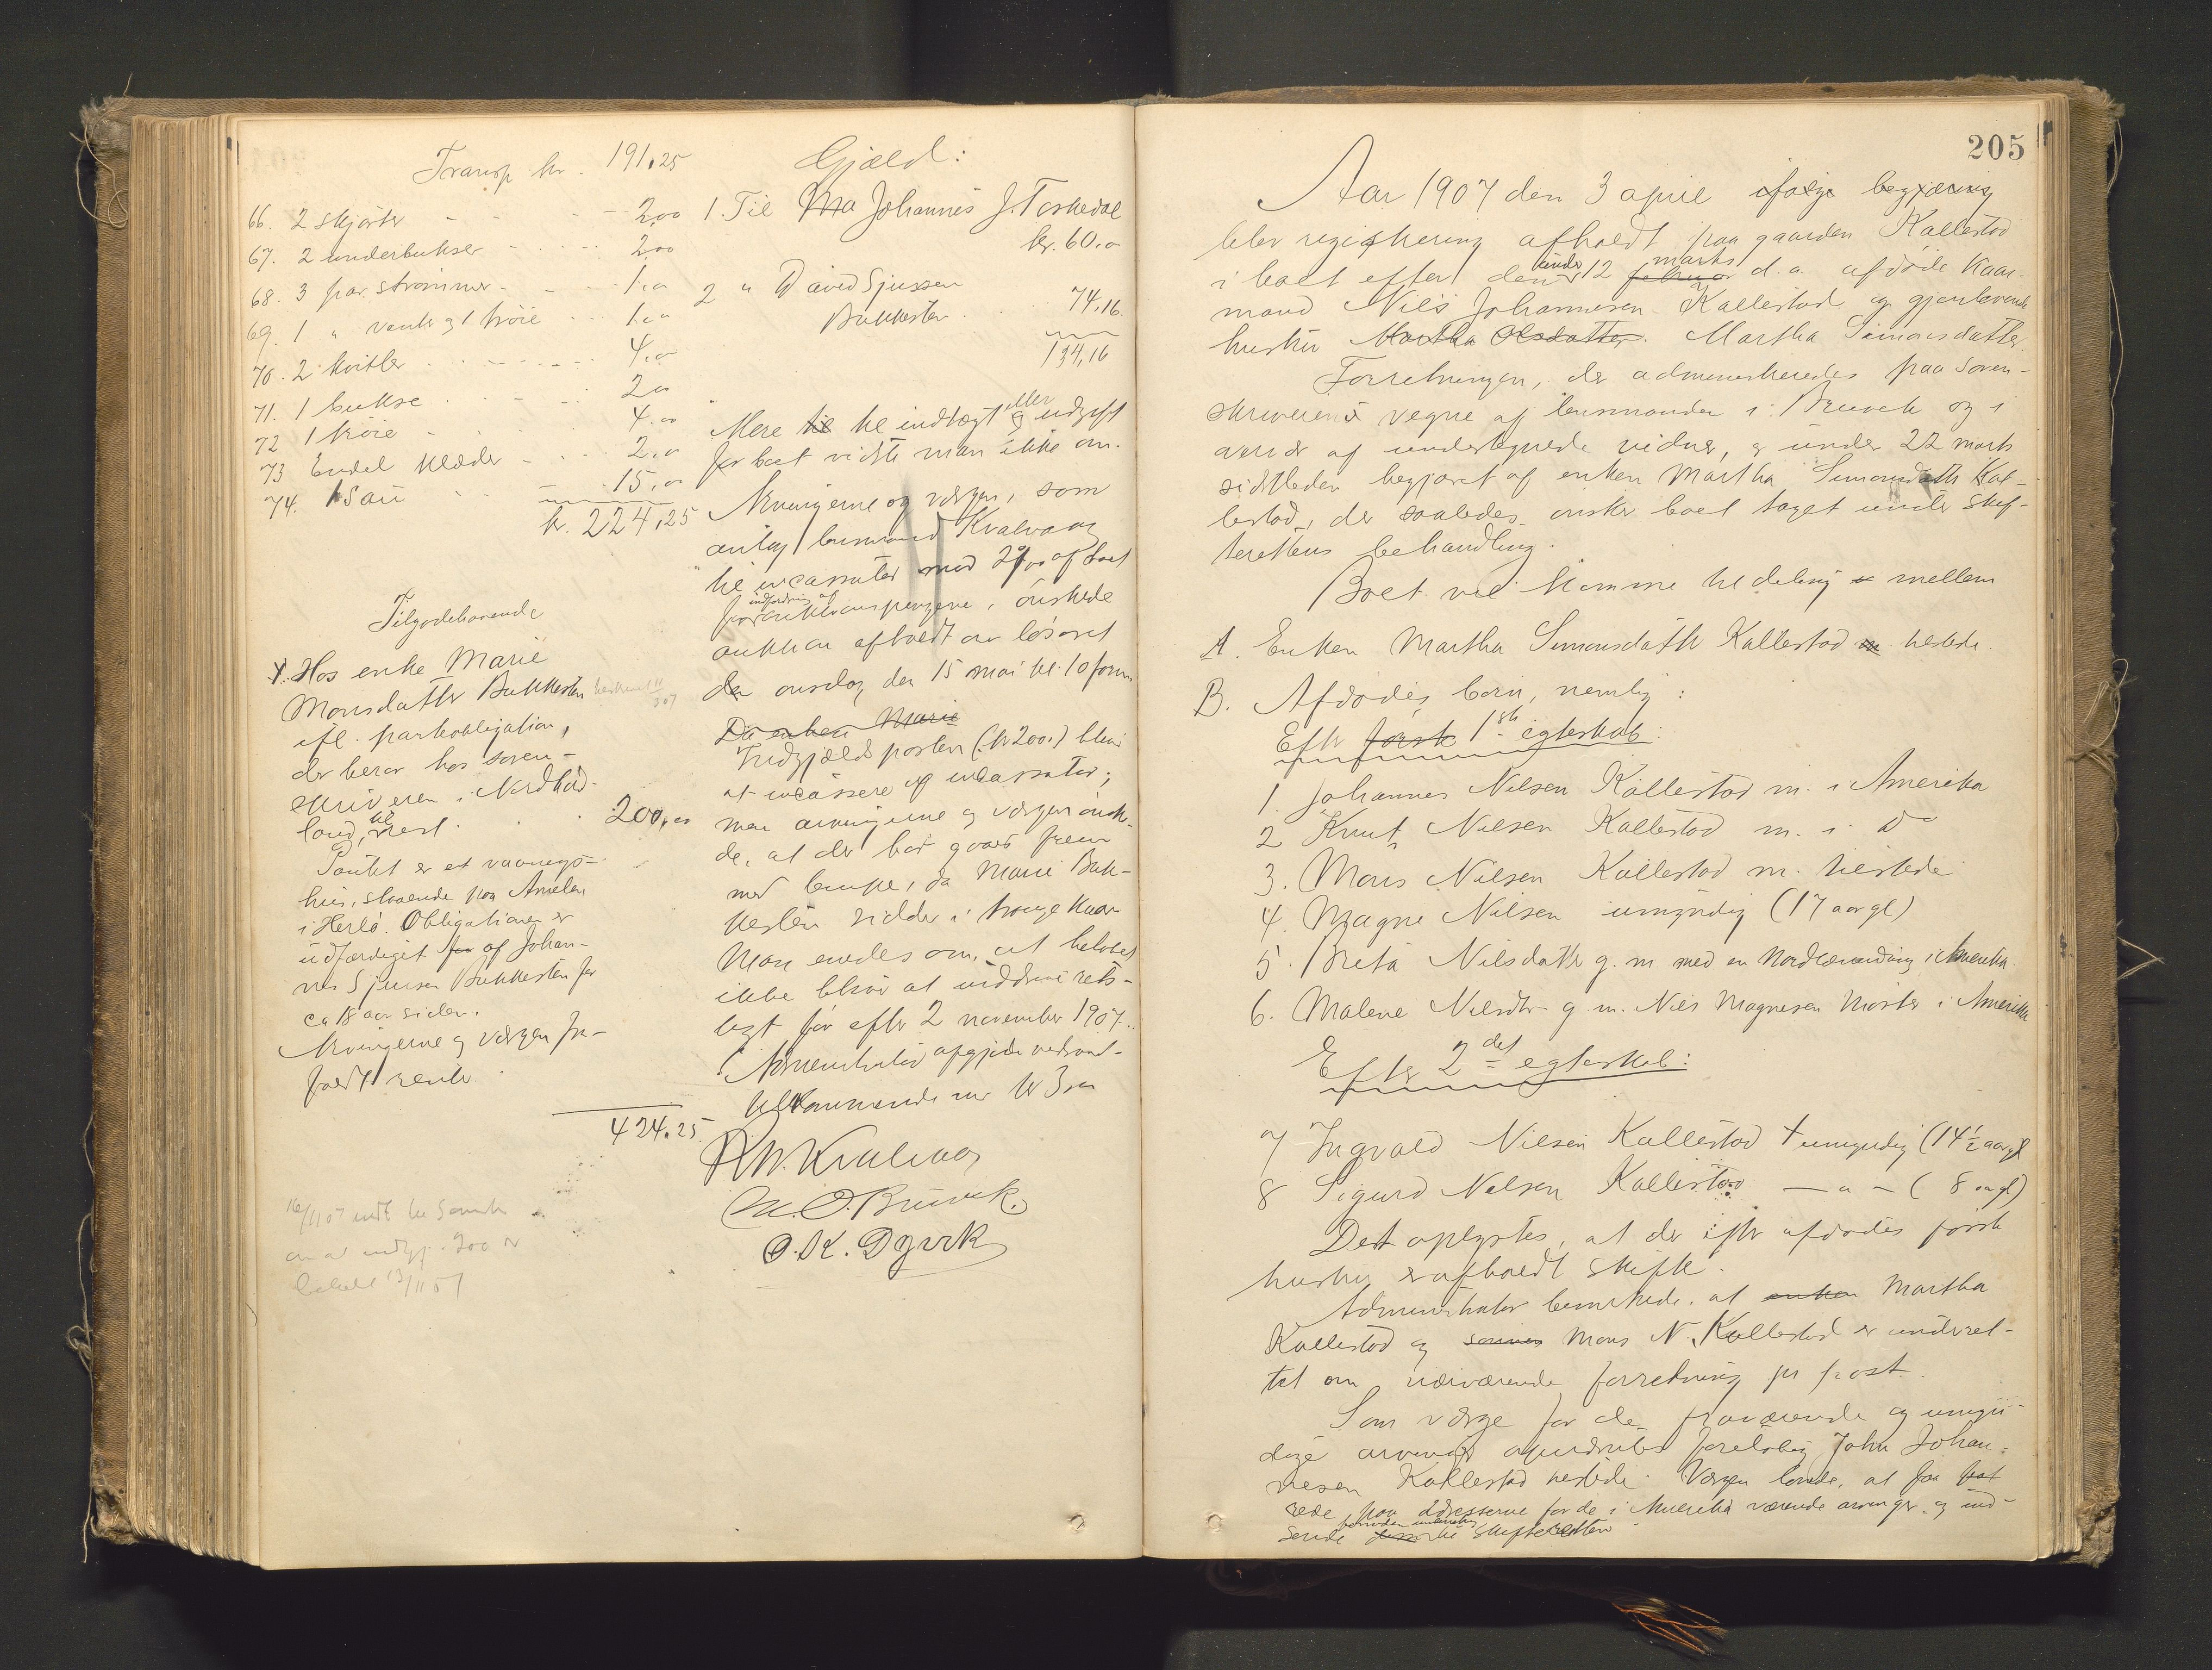 Transp kr. 191,25
66. 2 skjorter - - - 2,00
67. 2 underbukser - - - 2,00
68. 3 par strømper - - - 1,00
69. 1 " vanter og 1 trøie - - 1,00
70. 2 kvitler - - - 4,00
71. 1 bukse - - - 2,00
72 1 trøie - - - 4,00
73 Endel klæder - - - 2,00
74. 1 sau - - - 15,00
kr. 224,25
Tilgodehavende
1. Hos enke Marie
Monsdatter Bukkesten
ifl. panteobligation,
der beror hos soren-
skriveren i Nordhord-
land, rest . . . 200,00
Pantet er et vaanings-
hus, staaende paa Amelen
i Herlø. Obligationen er
udfærdiget for af Johan-
nes Sjursen Bukkesten for
ca 18 aar siden.
Arvingerne og værgen fra-
faldt rente.
424,25
Gjæld:
1. Til Ma Johannes J. Toskedal
kr. 60,00
2 " David Sjursen
Bukkesten . . 74,16
134,16
Mere til til indtægt eller og udgift
for boet vidste man ikke om.
Arvingerne og værgen, som
antog lensmand Kvalvaag
til incassator med 2% af boet
for indfordring af auktionspengene, ønskede
auktion afholdt over løsøret
den onsdag den 15 mai kl. 10 form
Da enken Marie
Indgjældsposten (kr 200,) blev
at incassere af incassator;
men arvingerne og værgen ønske-
de, at der bør gaaes frem
med lempe, da Marie Buk-
kesten sidder i trange kaar
Man enedes om, at beløbet
ikke blev at inddrive rets-
ligt før efter 2 november 1907.
Administrator opgjorde
tilkommende kr 3,00
R. N. Kvalvaag
M. O. Bruvik.
O. K. Dyvik
205
Aar 1907 den 3 april ifølge begjæring
blev registrering afholdt paa gaarden Kallestad
i boet efter den under 12 februar marts d.a. afdøde kaar-
mand Nils Johannesen Kallestad og gjenlevende
hustru Martha Olsdatter. Martha Simonsdatter.
Forretningen, der administreredes paa soren-
skriverens vegne af lensmanden i Bruvik og i
overvær af undertegnede vidner, er under 22 marts
sidstleden begjæret af enken Martha Simonsdatter Kal-
lestad, der saaledes ønsker boet taget under skif-
terettens behandling.
Boet vil komme til deling mellem
A. Enken Martha Simonsdatter Kallestad hersteds.
B. Afdødes børn, nemlig:
Efter første 1ste egteskab:
1. Johannes Nilsen Kallestad m. i Amerika
2 Knut Nilsen Kallestad m. i do
3. Mons Nilsen Kallestad m. hersteds
4. Magne Nilsen umyndig (17 aar gl)
5. Brita Nilsdatter g. m med en Nordlænding i Amerika.
6. Malene Nilsdtr g. m. Nils Magnesen Møster i Amerika
Efter 2det egteskab:
7 Ingvald Nilsen Kallestad umyndig (14½ aar gl)
8 Sigurd Nilsen Kallestad — " — (8 aar gl)
Det oplystes, at der efter afdødes første
hustru er afholdt skifte.
Administrator bemerkede, at enken Martha
Kallestad og sønnen Mons N. Kallestad er underret-
tet om nærværende forretning pr post.
Som værge for de fraværende og umyn-
dige arvinger opnævntes foreløbig John Johan-
nesen Kallestad hersteds. Værgen lovede, at faa
rede paa adresserne for de i Amerika værende arvinger og ind-
sende til skifteretten